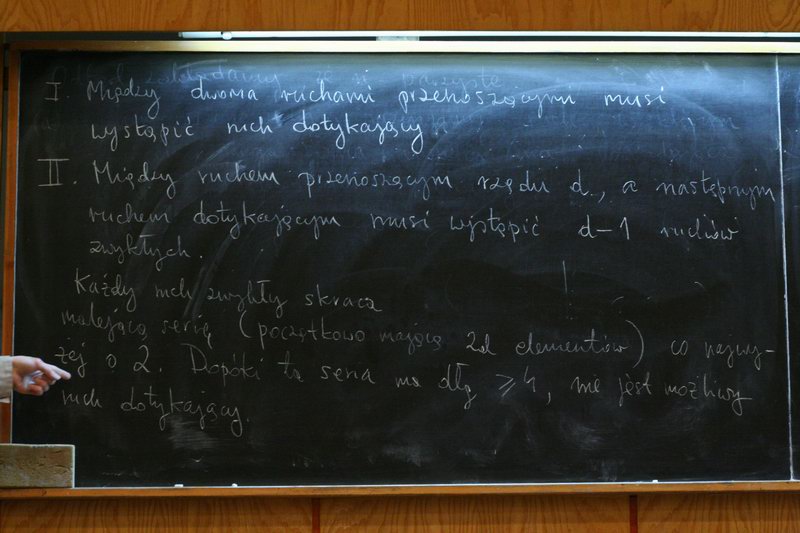 I. Między dwoma ruchami przenoszącymi musi
wystąpić ruch dotykający
II. Między ruchem przenoszącym rzędu d, a następnym
ruchem dotykającym musi wystąpić d-1 ruchów
zwykłych.
Każdy ruch zwykły skraca
malejącą serię (początkowo mającą 2d elementów) co najwy-
żej o 2. Dopóki ta seria ma dłg ≥4, nie jest możliwy
ruch dotykający.